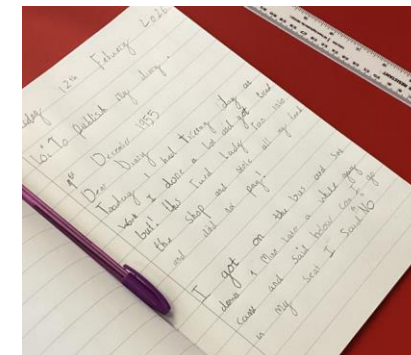 12th
LO: To publish my diary.
1st December 1955
Dear Diary
Today I had tiering day at
work I done a lot and got tired
but! this
the shop and all my
and did not pay!
I got on the bus and sat
down 4 Min later a white guy
came and said below can I go
in my seat I said NO